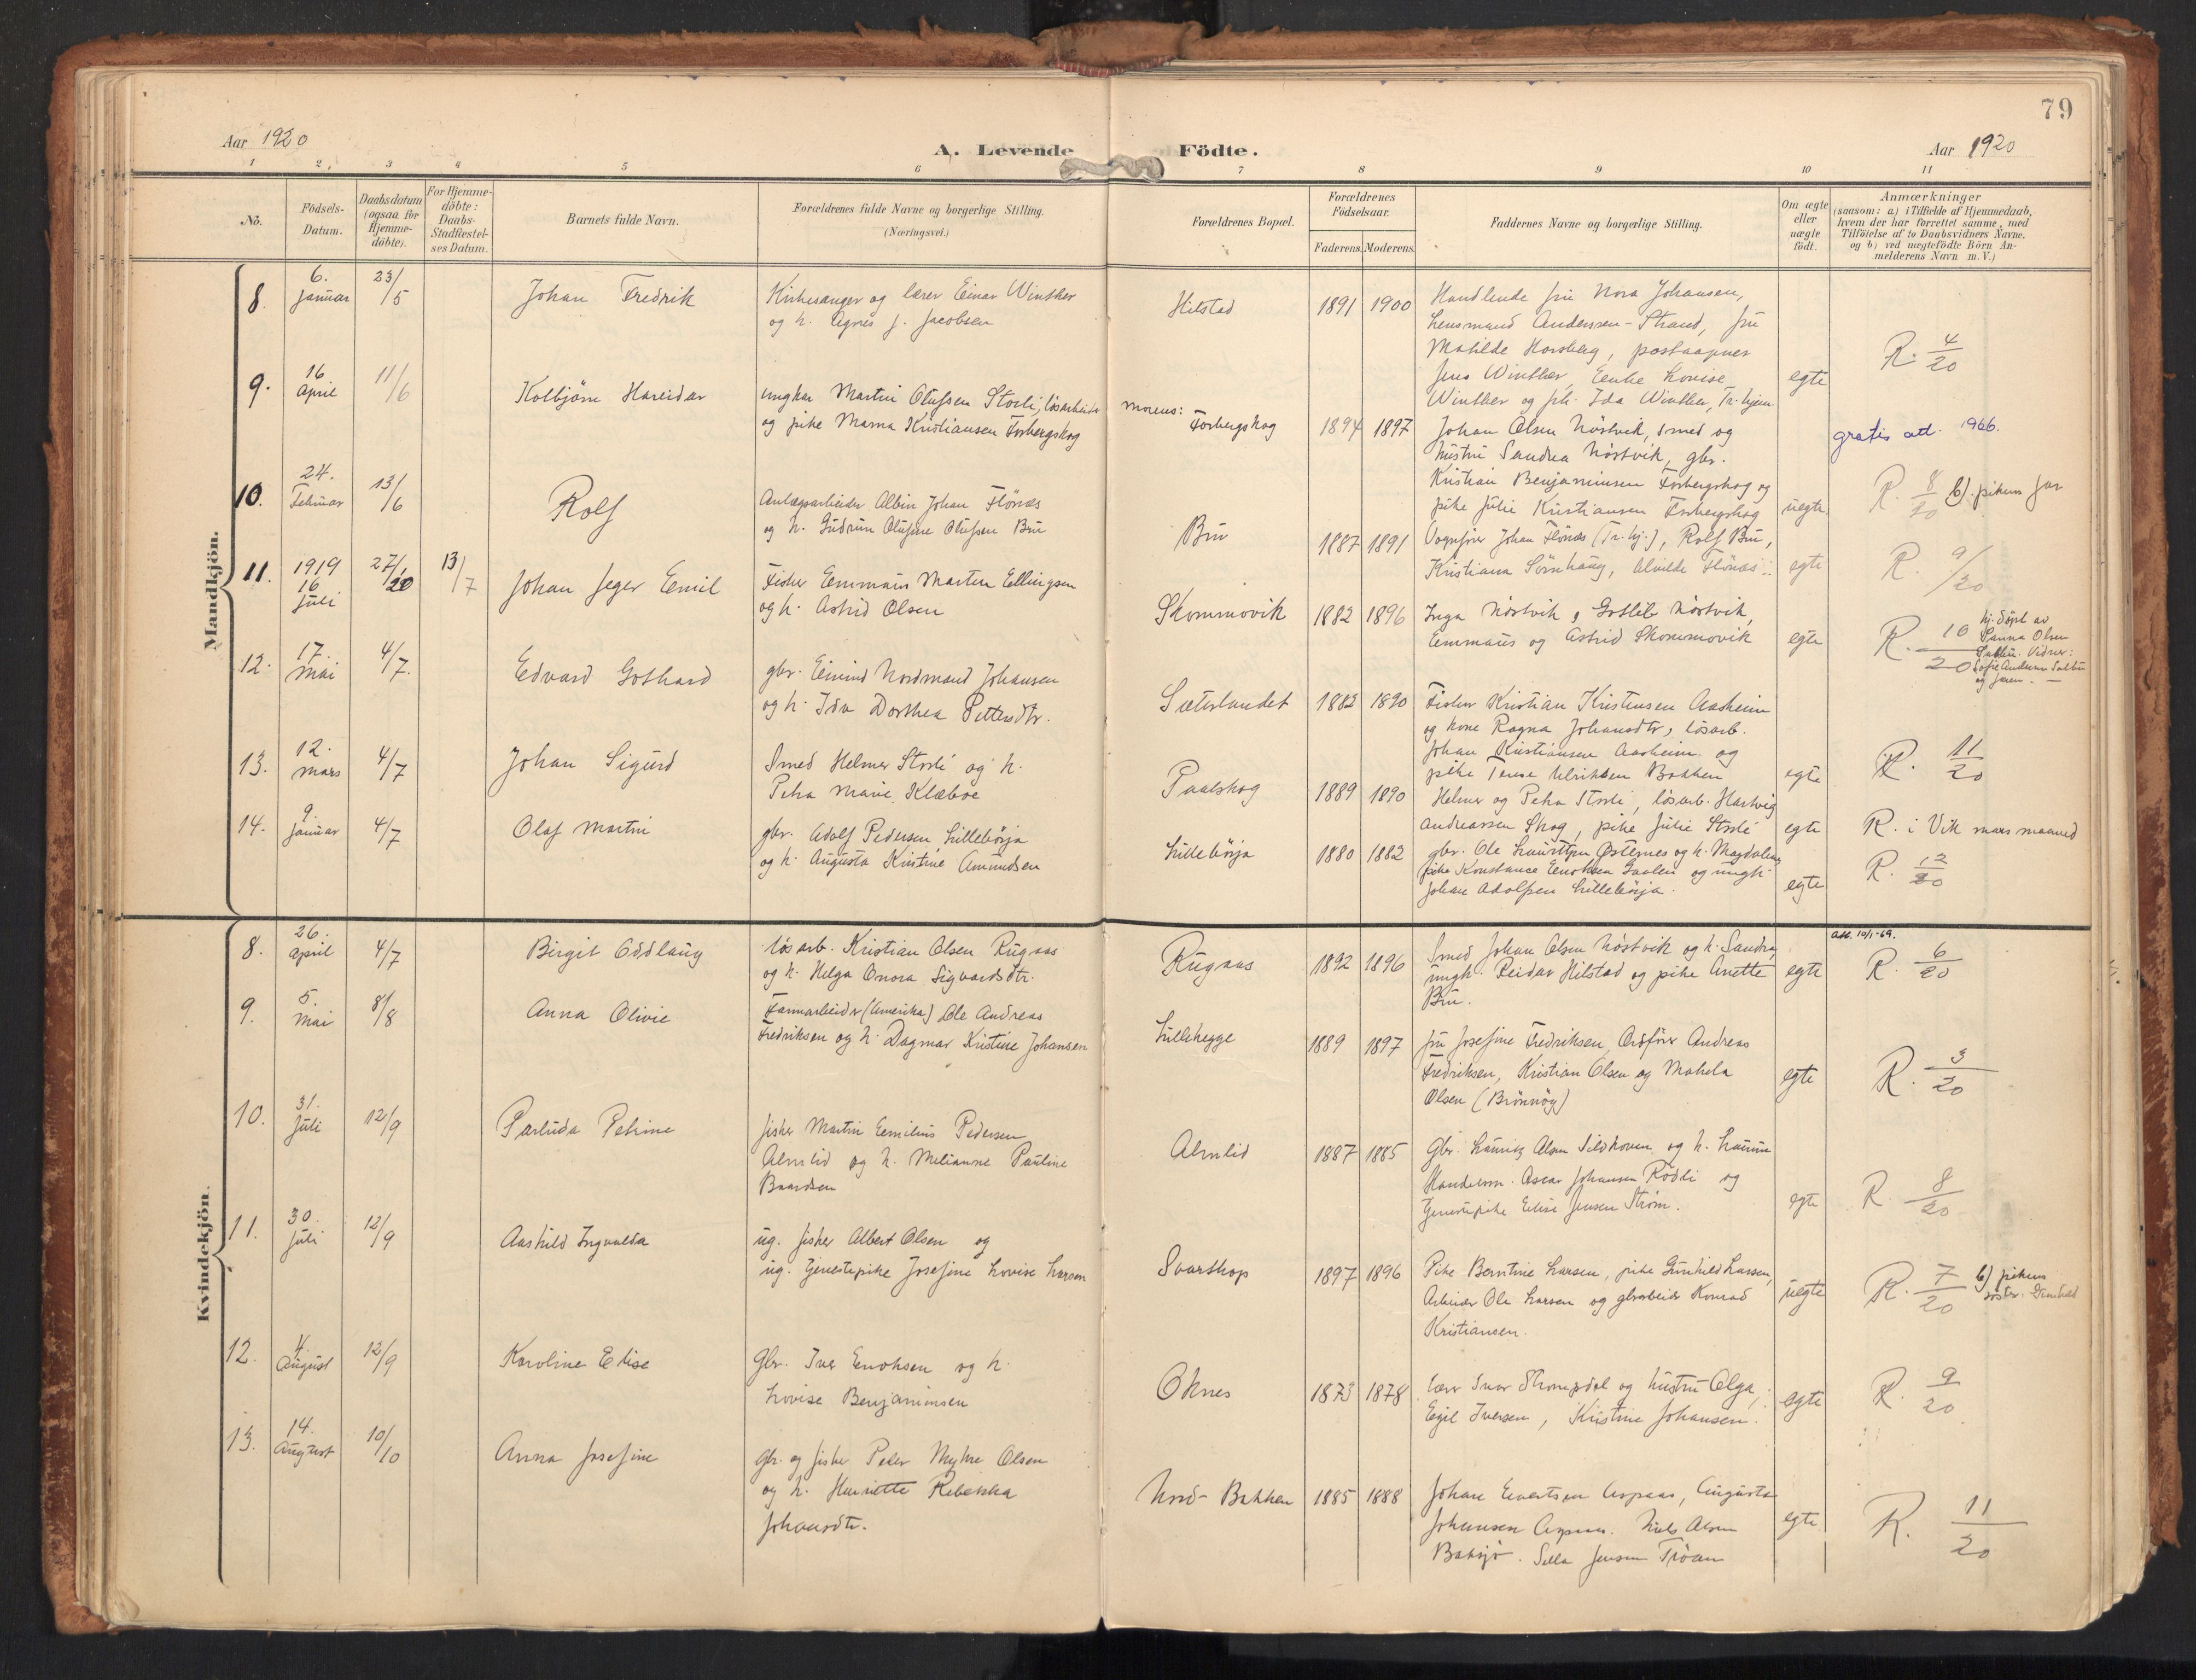 79
Aar 1920
A. Levende Födte.
Aar 1920
1 2. 3 4 5 6 7 8 9 10 11
No.
Födsels-
Datum.
Daabsdatum
(ogsaa for
Hjemme-
döbte).
For Hjemme-
döbte:
Daabs-
Stadfæstel-
ses Datum.
Barnets fulde Navn.
Forældrenes fulde Navne og borgerlige Stilling.
(Næringsvei.)
Forældrenes Bopæl.
Forældrenes
Födselsaar.
Faderens. Moderens.
Faddernes Navne og borgerlige Stilling.
Om ægte
eller
uægte
födt.
Anmærkninger
(saasom: a) i Tilfælde af Hjemmedaab,
hvem der har forrettet samme, med
Tilföielse af to Daabsvidners Navne,
og b) ved uægtefödte Börn An-
melderens Navn m. V.)
Mandkjön.
8. 6. januar 23/5 Johan Fredrik
Kirkesanger og lærer Einar Winther
og h. Agnes J. Jacobsen
Hilstad 1891 1900
Handlende fru Nora Johansen,
Lensmand Anderssen-Strand, fru
Matilde Horsberg, postaapner
Jens Winther, Enke Lovise
Winther og frk. Ida Winther, Tr.hjem
egte
R. 4/20
9. 16 April 11/6 Kolbjörn Hareidar
ungkar Martin Olufsen Storli, lösarbeider
og pike Marna Kristiansen Forbergskog
morens: Forbergskog 1894 1897
Johan Olsen Nöstvik, smed og
hustru Sandra Nöstvik, gbr.
Kristian Benjaminsen Forbergskog og
pike Julie Kristiansen Forbergskog
uegte
gratis att. 1966.
R. 8/20 b). pikens far
10. 24. Februar 13/6 Rolf
Anlægsarbeider Albin Johan Flönes
og h. Gudrun Olufine Olufsen Bru
Bru 1887 1891
Vognfører Johan Flönes (Tr.hj.), Rolf Bru,
Kristiana Sörnhaug, Alvilde Flönes
egte
R. 9/20
11. 1919 16 Juli 27/1 20 13/7 Johan Jeger Emil
Fisker Emmaus Marten Ellingsen
og h. Astrid Olsen
Skommovik 1882 1896
Inga Nöstvik, Gotlib Nöstvik,
Emmaus og Astrid Skommovik
egte
R. 10/20 hj. döpt av
Sanna Olsen
Vidner:
Sofie Andersen
12. 17. Mai 4/7. Edvard Gothard
gbr. Eivind Nordmand Johansen
og h. Ida Dorthea Pettersdtr.
Sæterlandet 1882 1890
Fisker Kristian Kristensen Aasheim
og kone Ragna Johansdtr, lösarb.
Johan Kristiansen Aasheim og
pike Terese Ulriksen Bakken
egte
R. 11/20
13. 12. mars 4/7 Johan Sigurd
Smed Helmer Storli og h.
Petra Marie Klæboe
Paalskog 1889 1890
Helmer og Petra Storli, lösarb. Hartvig
Andreassen Skog, pike Julie Storli
egte
R. i Vik mars maaned
14. 9. januar 4/7 Olaf Martin
gbr. Adolf Pedersen Lillebörja
og h. Augusta Kristine Amundsen
Lillebörja 1880 1882
gbr. Ole Østernes og h. Magdalena,
pike Konstance Enoksen og ungk.
Johan Adolfsen Lillebörja.
egte
R. 12/20
Kvindekjön.
8. 26. april 4/7 Birgit Oddlaug
lös arb. Kristian Olsen Rugaas
og h. Helga Onora Sigvardsdtr.
Rugaas 1892 1896
Smed Johan Olsen Nöstvik og h. Sandra,
ungk. Reidar Hilstad og pike Anette
Bru.
egte
att. 10/1-69.
R. 6/20
9. 5. mai 8/8 Anna Olivie
Farmarbeider (Amerika) Ole Andreas
Fredriksen og h. Dagmar Kristine Johansen
Lillehegge 1889 1897
fru Josefine Fredriksen, Ordförer Andreas
Fredriksen, Kristian Olsen og Makela
Olsen (Brönnöy)
egte
R. 3/20
10. 31. Juli 12/9 Parluda Petrine
fisker Martin Emilius Pedersen
Almlid og h. Melianne Pauline
Baardsen
Almlid 1887 1885
Gbr. Lauritz Olsen og h.
Handelsm. Oscar Johansen Rödli og
Tjenestepike Elise Jensen Ström.
egte
R. 8/20
11. 30. Juli 12/9 Aashild Ingvalda
ug. fisker Albert Olsen og
ug. tjenestepike Josefine Lovise Larsen
Svartkop 1897 1896
Pike Berntine Larsen, pike Gunhild Larsen,
Arbeider Ole Larsen og gbrarbeider Konrad
Kristiansen.
uegte
R. 7/20 b) pikens
söster. Gunhild
12. 4. August 12/9 Karoline Elise
Gbr. Iver Enoksen og h.
Lovise Benjaminsen
Oknes 1873 1878
Lærer Ivar Skompdal og hustru Olga,
Egil Iversen, Kristine Johansen.
egte
R. 9/20
13. 14. August 10/10 Anna Josefine
Gbr. og fisker Peder Myhre Olsen
og h. Henriette Rebekka
Johansdtr.
Nord-Bakken 1885 1888
Johan Evertsen Aspaas, Augusta
Johansen Aspaas. Niels Olsen
Baksjö. Sella Jensen Tröan
egte
R. 11/20